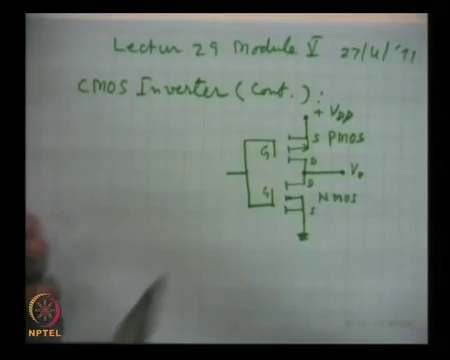 Lectur 29 Module V 27/4/'91
CMOS Inverter (Cont.):
+ VDD
S PMOS
G
D
Vo
D
G NMOS
S
NPTEL